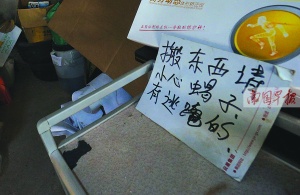 搬东西请
小心蝎子.
有逃跑的
南国早报